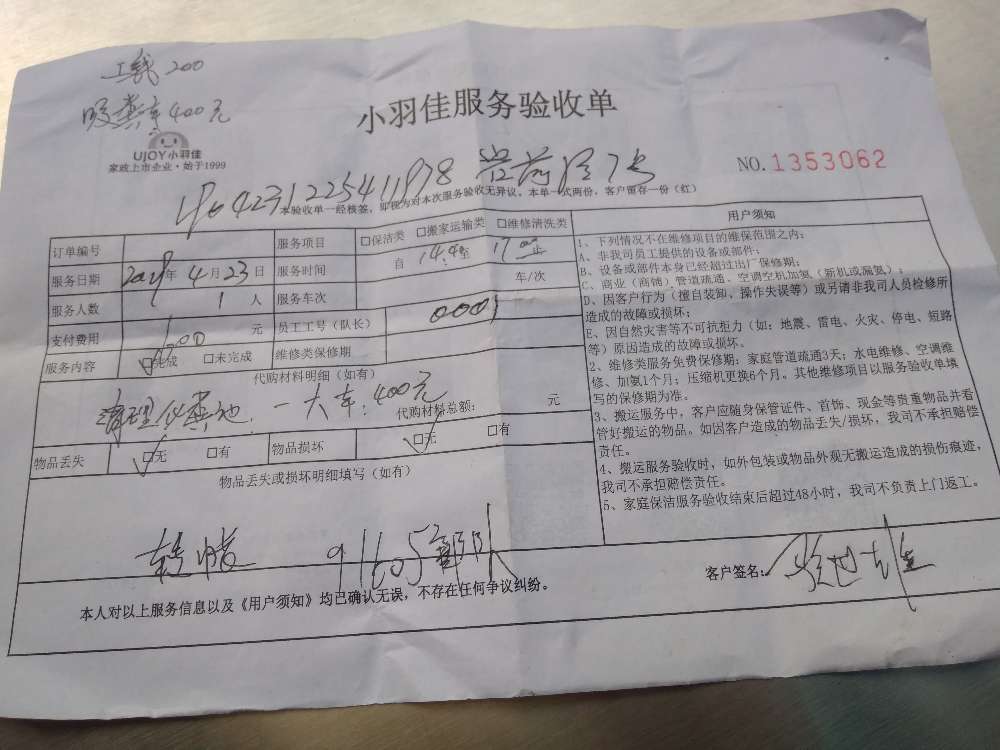 工钱200
吸粪车400元
UJOY小羽佳
家政上市企业·始于1999
小羽佳服务验收单
NO.1353062
4231225411978
本验收单一经核签，即视为对本次服务验收无异议，本单一式两份，客户留存一份（红）
订单编号 服务项目 □保洁类 □搬家运输类 □维修清洗类
服务日期 年4月23日 服务时间 自 至 止
服务人数 1人 服务车次 车/次
支付费用 元 员工工号（队长）
服务内容 □完成 □未完成 维修类保修期
代购材料明细（如有）
清理化粪池.一大车：400元
代购材料总额： 元
物品丢失 □无 □有 物品损坏 □无 □有
物品丢失或损坏明细填写（如有）
转帐
本人对以上服务信息以及《用户须知》均已确认无误，不存在任何争议纠纷。
客户签名：
用户须知
1、下列情况不在维修项目的维保范围之内：
A、非我司员工提供的设备或部件；
B、设备或部件本身已经超过出厂保修期；
C、商业（商铺）管道疏通、空调空机加氨（新机或漏氨）；
D、因客户行为（擅自装卸、操作失误等）或另请非我司人员检修所
造成的故障或损坏；
E、因自然灾害等不可抗拒力（如：地震、雷电、火灾、停电、短路
等）原因造成的故障或损坏。
2、维修类服务免费保修期：家庭管道疏通3天；水电维修、空调维
修、加氨1个月；压缩机更换6个月。其他维修项目以服务验收单填
写的保修期为准。
3、搬运服务中，客户应随身保管证件、首饰、现金等贵重物品并看
管好搬运的物品。如因客户造成的物品丢失/损坏，我司不承担赔偿
责任。
4、搬运服务验收时，如外包装或物品外观无搬运造成的损伤痕迹，
我司不承担赔偿责任。
5、家庭保洁服务验收结束后超过48小时，我司不负责上门返工。